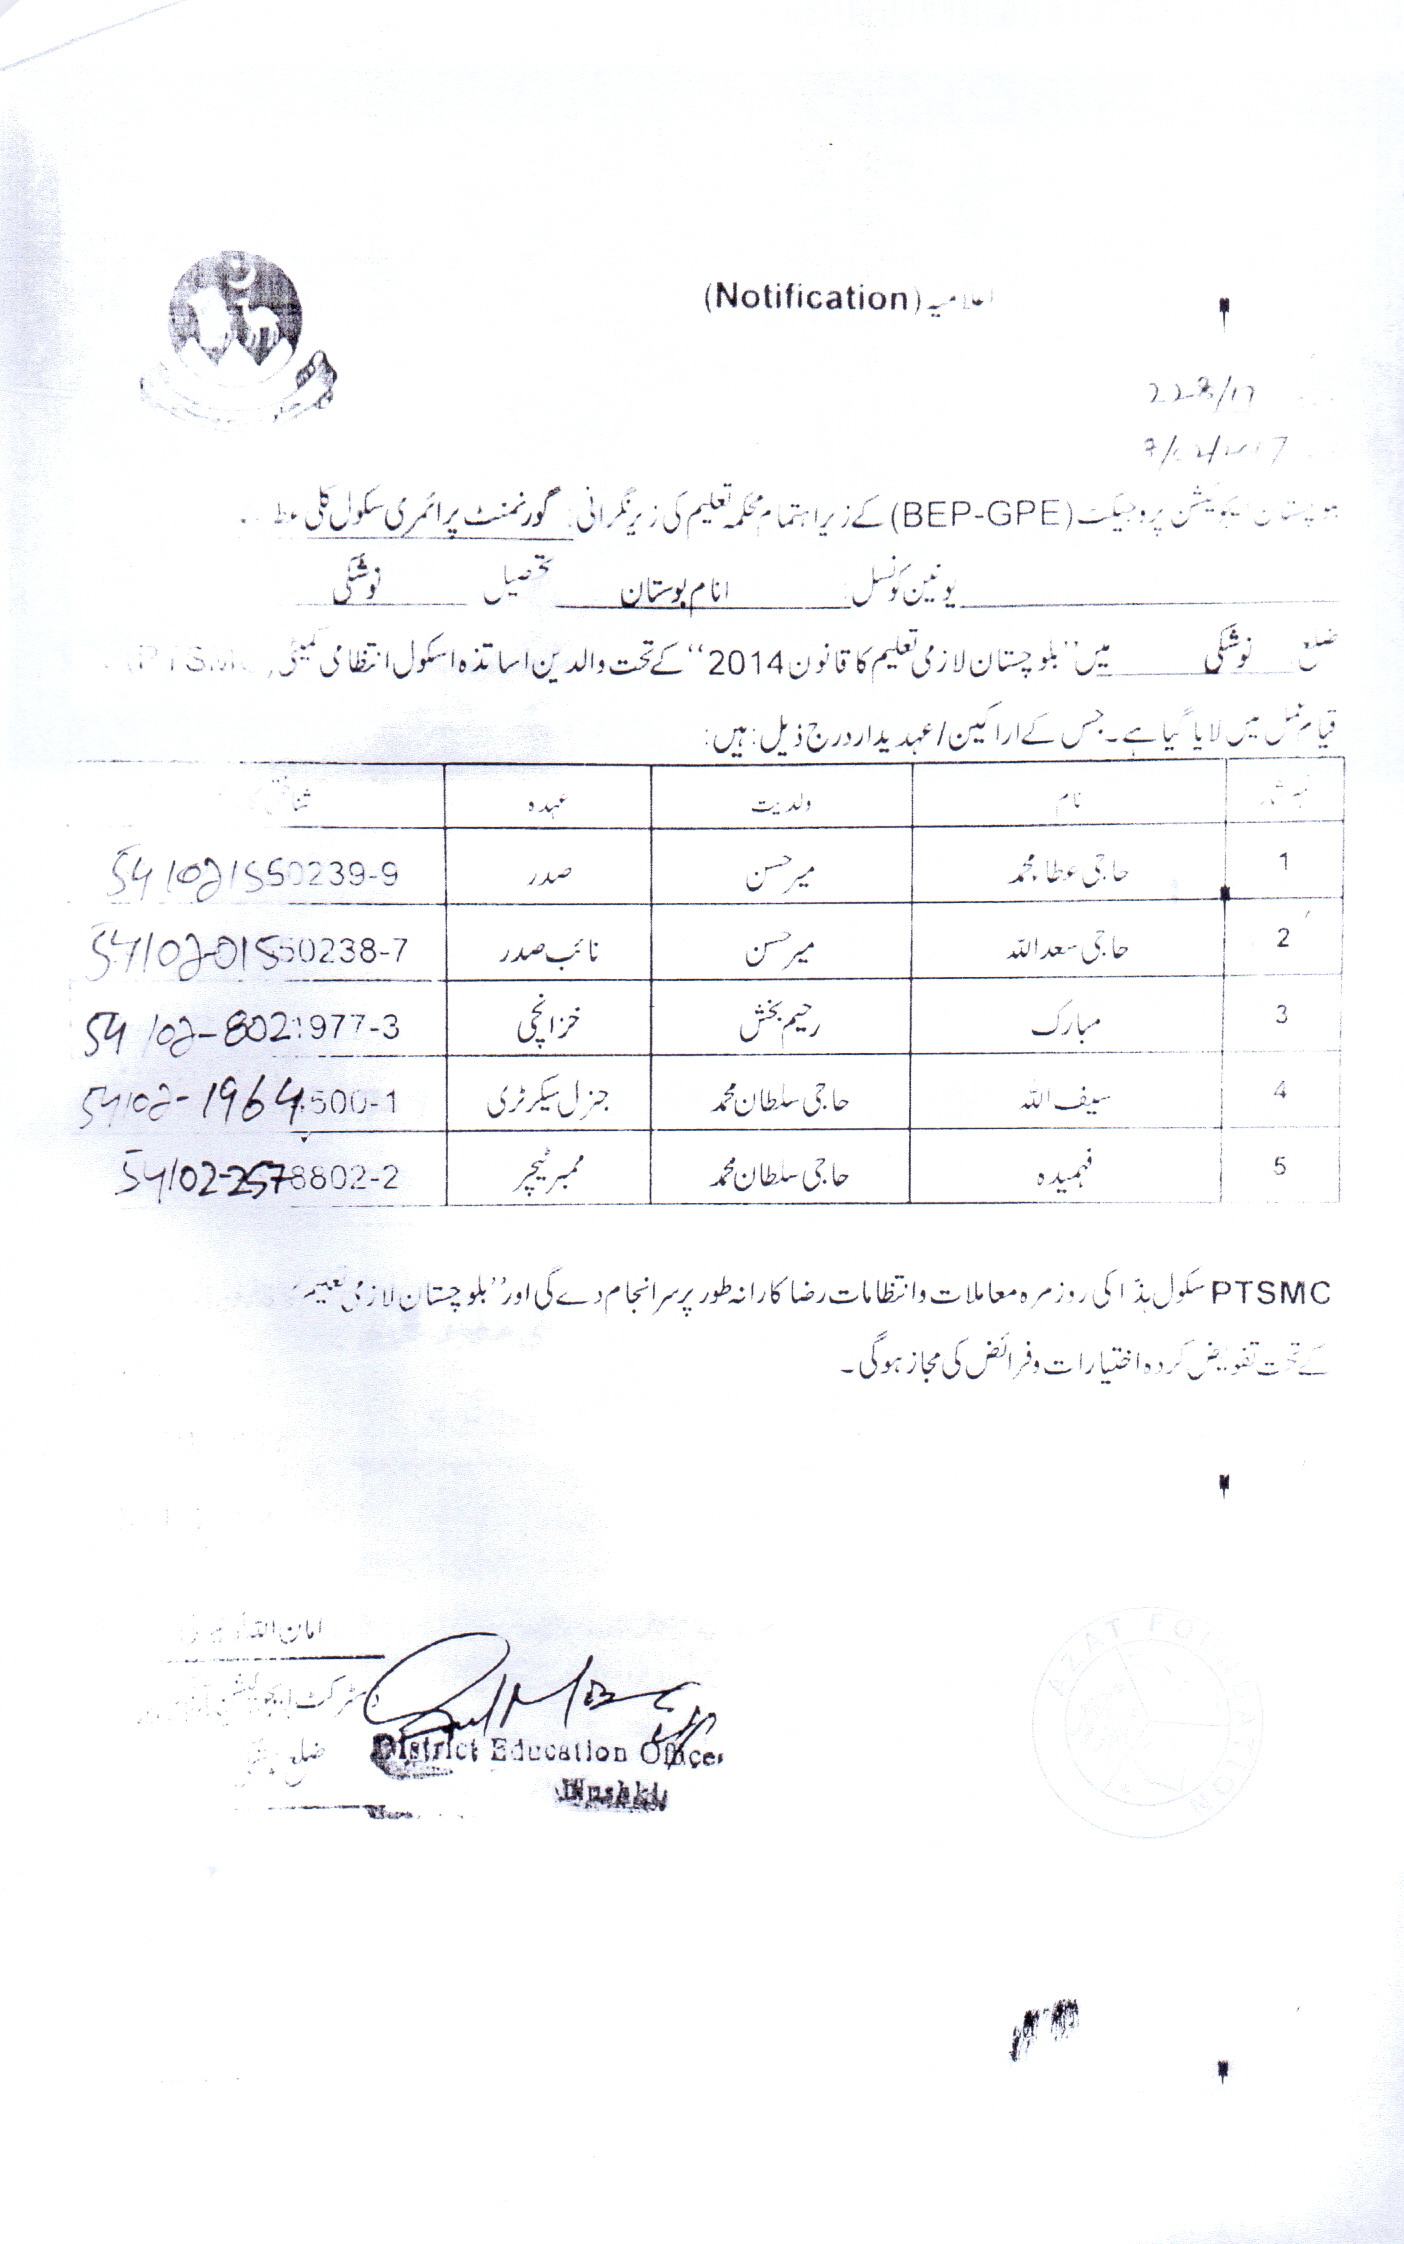 اعلامیہ (Notification)
228/17
بلوچستان ایجوکیشن پروجیکٹ (BEP-GPE) کے زیر اہتمام محکمہ تعلیم کی زیر نگرانی: گورنمنٹ پرائمری سکول کلی
یونین کونسل: انام بوستان تحصیل نوشکی
ضلع نوشکی میں "بلوچستان لازمی تعلیم کا قانون 2014" کے تحت والدین اساتذہ اسکول انتظامی کمیٹی (PTSMC)
قیام عمل میں لایا گیا ہے۔ جس کے اراکین/عہدیدار درج ذیل ہیں:
نمبر شمار نام ولدیت عہدہ شناختی
1 حاجی عطاء محمد میر حسن صدر 541021550239-9
2 حاجی سعد اللہ میر حسن نائب صدر 54102-01550238-7
3 مبارک رحیم بخش خزانچی 54102-8021977-3
4 سیف اللہ حاجی سلطان محمد جنرل سیکرٹری 54102-1964500-1
5 فہمیدہ حاجی سلطان محمد ممبر ٹیچر 54102-2578802-2
PTSMC سکول ہذا کی روزمرہ معاملات و انتظامات رضا کارانہ طور پر سرانجام دے گی اور "بلوچستان لازمی تعلیم
کے تحت تفویض کردہ اختیارات و فرائض کی مجاز ہوگی۔
امان اللہ
ڈسٹرکٹ ایجوکیشن
ضلع
District Education Officer
Nushki
AZAT FOUNDATION